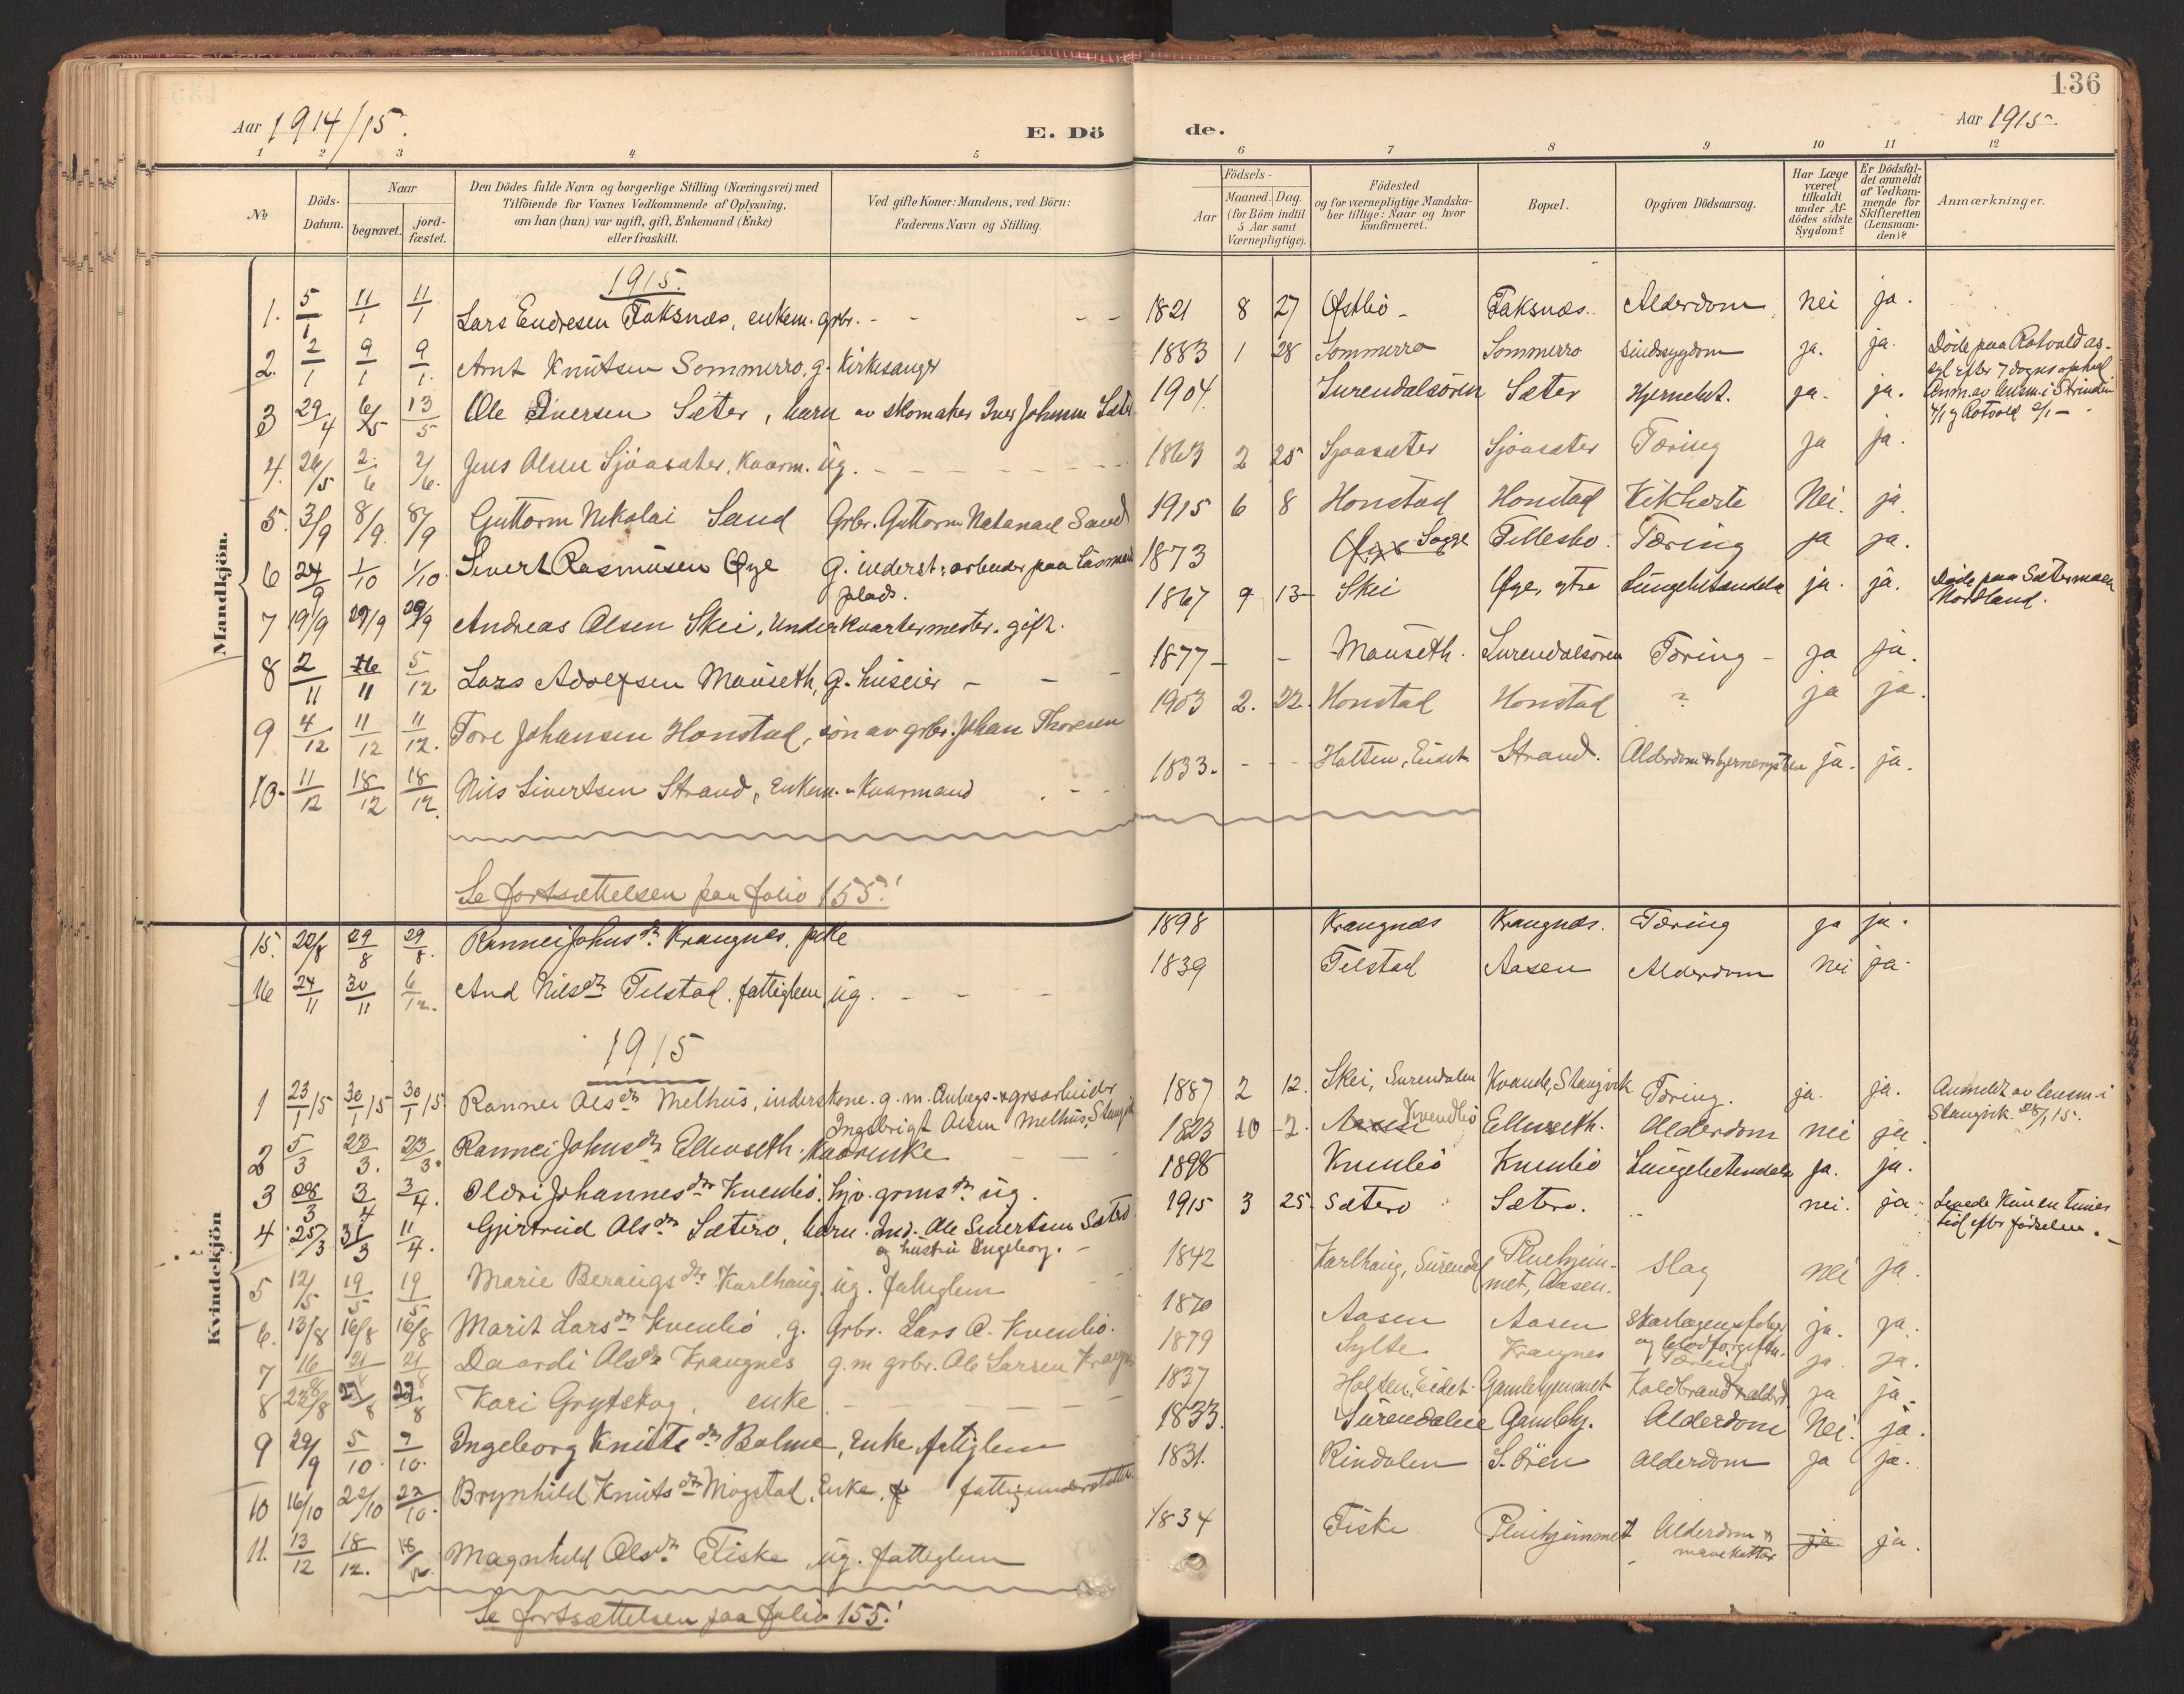 136
Aar 1914/15.
E. Dö
de.
Aar 1915.
1 2 3 4 5 6 7 8 9 10 11 12
No
Döds-Datum.
Naar
begravet.
jord-fæstet.
Den Dödes fulde Navn og borgerlige Stilling (Næringsvei) med
Tilföiende for Voxnes Vedkommende af Oplysning,
om han (hun) var ugift, gift, Enkemand (Enke)
eller fraskilt.
Ved gifte Koner: Mandens, ved Börn:
Faderens Navn og Stilling.
Födsels-
Aar
Maaned. Dag.
(for Börn indtil
5 Aar samt
Værnepligtige).
Födested
og for værnepligtige Mandska-
ber tillige: Naar og hvor
konfirmeret.
Bopæl.
Opgiven Dödsaarsag.
Har Læge
været
tilkaldt
under Af-
dödes sidste
Sygdom?
Er Dödsfal-
det anmeldt
af Vedkom-
mende for
Skifteretten
(Lensman-
den)?
Anmærkninger.
Mandkjön.
1915.
1. 5/1 11/1 11/1 Lars Endresen Faksnæs, enkem. grbr. - - 1821 8 27 Østbö - Faksnæs. Alderdom nei ja.
2. 2/1 9/1 9/1. Arnt Knutsen Sommerro, g. Kirkesanger 1883 1 28 Sommerro Sommerro Sindssygdom ja. ja. Döde paa Rotvold as-
syl efter 7 dognsophol
3 29/4 6/5 13/5 Ole Iversen Sæter, barn av skomaker Iver Johnsen Sæter 1904 Surendalsören Sæter Hjernebet. ja. ja. Anm. av lensm. i Strinden
4/1 og Rotvold 2/1 -
4. 26/5 2/6 2/6. Jens Olsen Sjöasæter, Kaarm. ug. 1863 2 25 Sjöasæter Sjöasæter Tæring ja ja.
5. 3/9 8/9. 8/9 Guttorm Nikolai Sand Grbr. Guttorm Natanael Sand 1915 6 8 Honstad Honstad Kikhoste Nei. ja.
6 24/9 1/10 1/10. Sivert Rasmusen Øye g. inderst; arbeider paa
plads. 1873 Sogge Tellesbo. Tæring ja ja.
7 19/9 29/9 29/9 Andreas Olsen Skei, Underkvartermester. gift. 1867 9 13 Skei Øye, ytre Lungebetændelse ja. ja. Döde paa Sætermoen
Nordland.
8 2/11 11 5/12 Lars Adolfsen Mauseth, g. huseier - - - 1877 - - Mauseth. Surendalsören Tæring - ja ja.
9 4/12 11/12 11/12. Tore Johansen Honstad, sön av grbr. Johan Thoresen 1903 2. 22. Honstad Honstad ? ja ja.
10. 11/12 18/12 18/12. Nils Sivertsen Strand, Enkem. Kaarmand 1833. - - Holten, Eidet Strand. Alderdom & hjernerystn ja. ja.
Se fortsættelsen paa folio 155!
Kvindekjön
15. 22/8 29/8 29/8. Rannei Johnsdtr Krangnes, pike 1898 Krangnæs Krangnæs. Tæring ja ja.
16 24/11 30/11 6/12. And Nilsdtr Telstad, fattiglem, ug. - - - 1839 Telstad Aasen Alderdom nei ja.
1915
1 23/1 15 30/1 15 30/1 15 Rannei Olsdtr Melhus, inderstkone. g. m. Anlegs- & grsarbeider
Ingebrigt Olsen Melhus, Stangvik 1887 2 12. Skei, Surendalen Kvande, Stangvik Tæring. ja. ja. Anmeldt av lensm. i
Stangvik. 28/1 15.
2 5/3 23/3. 23/3. Rannei Johnsdtr Ellevseth. Kaarenke 1823 10 2. Kvendbö Ellevseth. Alderdom nei ja.
3 28/3 3/4 3/4. Oldri Johannesdtr Kvenbö. hjv. grmsdtr ug. 1898 Kvenbö Kvenbö Lungebetændelse ja. ja.
4 25/3 31/3 11/4. Gjertrud Olsdtr Sætero, barn. Ind. Ole Sivertsen Sæterö
og hustru Ingeborg. - 1915 3 25. Sætero Sætero. - nei. ja. Levede kun en times
tid efter födselen. -
5 12/5 19/5 19/5 Marie Beraugsdtr Karlhaug, ug. fattiglem 1842 Karlhaug, Surendal Pleiehjem-
met, Aasen. Slag nei ja.
6. 13/8 16/8 16/8 Marit Larsdtr Kvenbö, g. Grbr. Lars O. Kvenbö. 1870 Aasen Aasen Skarlagensfeber
og blodforgiftn. ja. ja.
7 16/8 21/8 21/8 Daardi Olsdtr Krangnes g. m grbr. Ole Larsen Krangnes 1879 Sylte Krangnes Tæring ja ja.
8 23/8 27/8 27/8 Kari Grytskog, enke - - - 1837 Holten, Eidet. Gamlehjemmet Koldbrand & alderd. ja ja.
9 29/9 5/10. 7/10. Ingeborg Knutsdtr Bolme, Enke, fattiglem 1833. Surendalen Gamlehj. Alderdom Nei. ja.
10 16/10 22/10 22/10. Brynhild Knutsdtr Mogstad, Enke, fattigunderstöttet. 1831. Rindalen S. ören Alderdom ja ja.
11. 13/12 18/12. 18/12 Magnhild Olsdtr Fiske, ug. fattiglem 1834 Fiske Pleiehjemmet Alderdom &
mavekatar ja ja.
Se fortsættelsen paa folio 155!